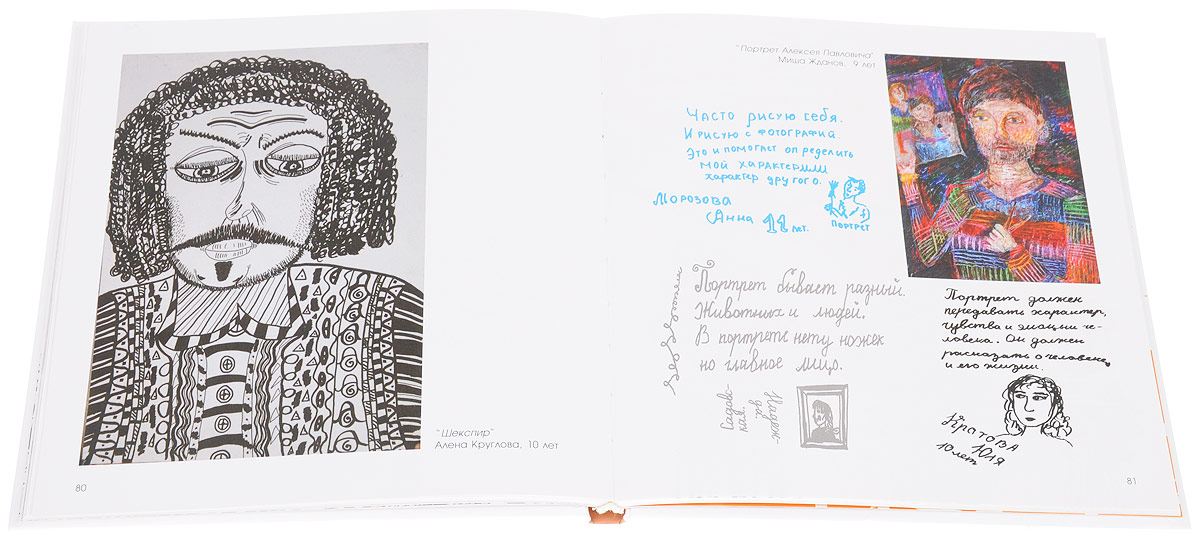 "Шекспир"
Алена Круглова, 10 лет
80
"Портрет Алексея Павловича"
Миша Жданов, 9 лет
Часто рисую себя.
И рисую с фотографий.
Это и помогает определить
мой характер или
характер другого.
Морозова
Анна 11 лет.
портрет
Портрет бывает разный.
Животных и людей.
В портрете нету ножек
но главное лицо.
Садов-
ская
Надеж-
да
Портрет должен
передавать характер,
чувства и эмоции че-
ловека. Он должен
рассказать о человеке
и его жизни.
Юля
10 лет
81